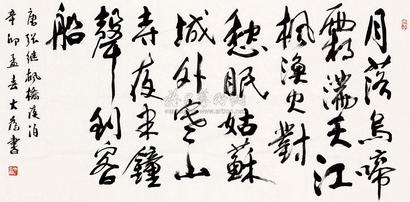 月落烏啼
霜滿天江
楓漁火對
愁眠姑蘇
城外寒山
寺夜半鐘
聲到客
船
唐張继楓橋夜泊
辛卯孟春大龙書